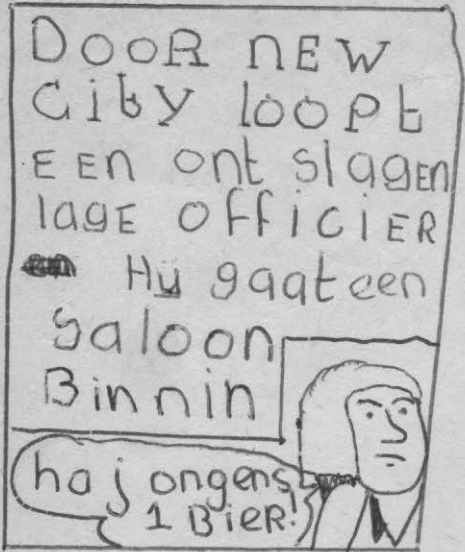 DOOR NEW
City loopt
EEn ont slagen
lagE OFFICIER
Hij gaat een
Saloon
Binnin
ha jongens
1 BieR!